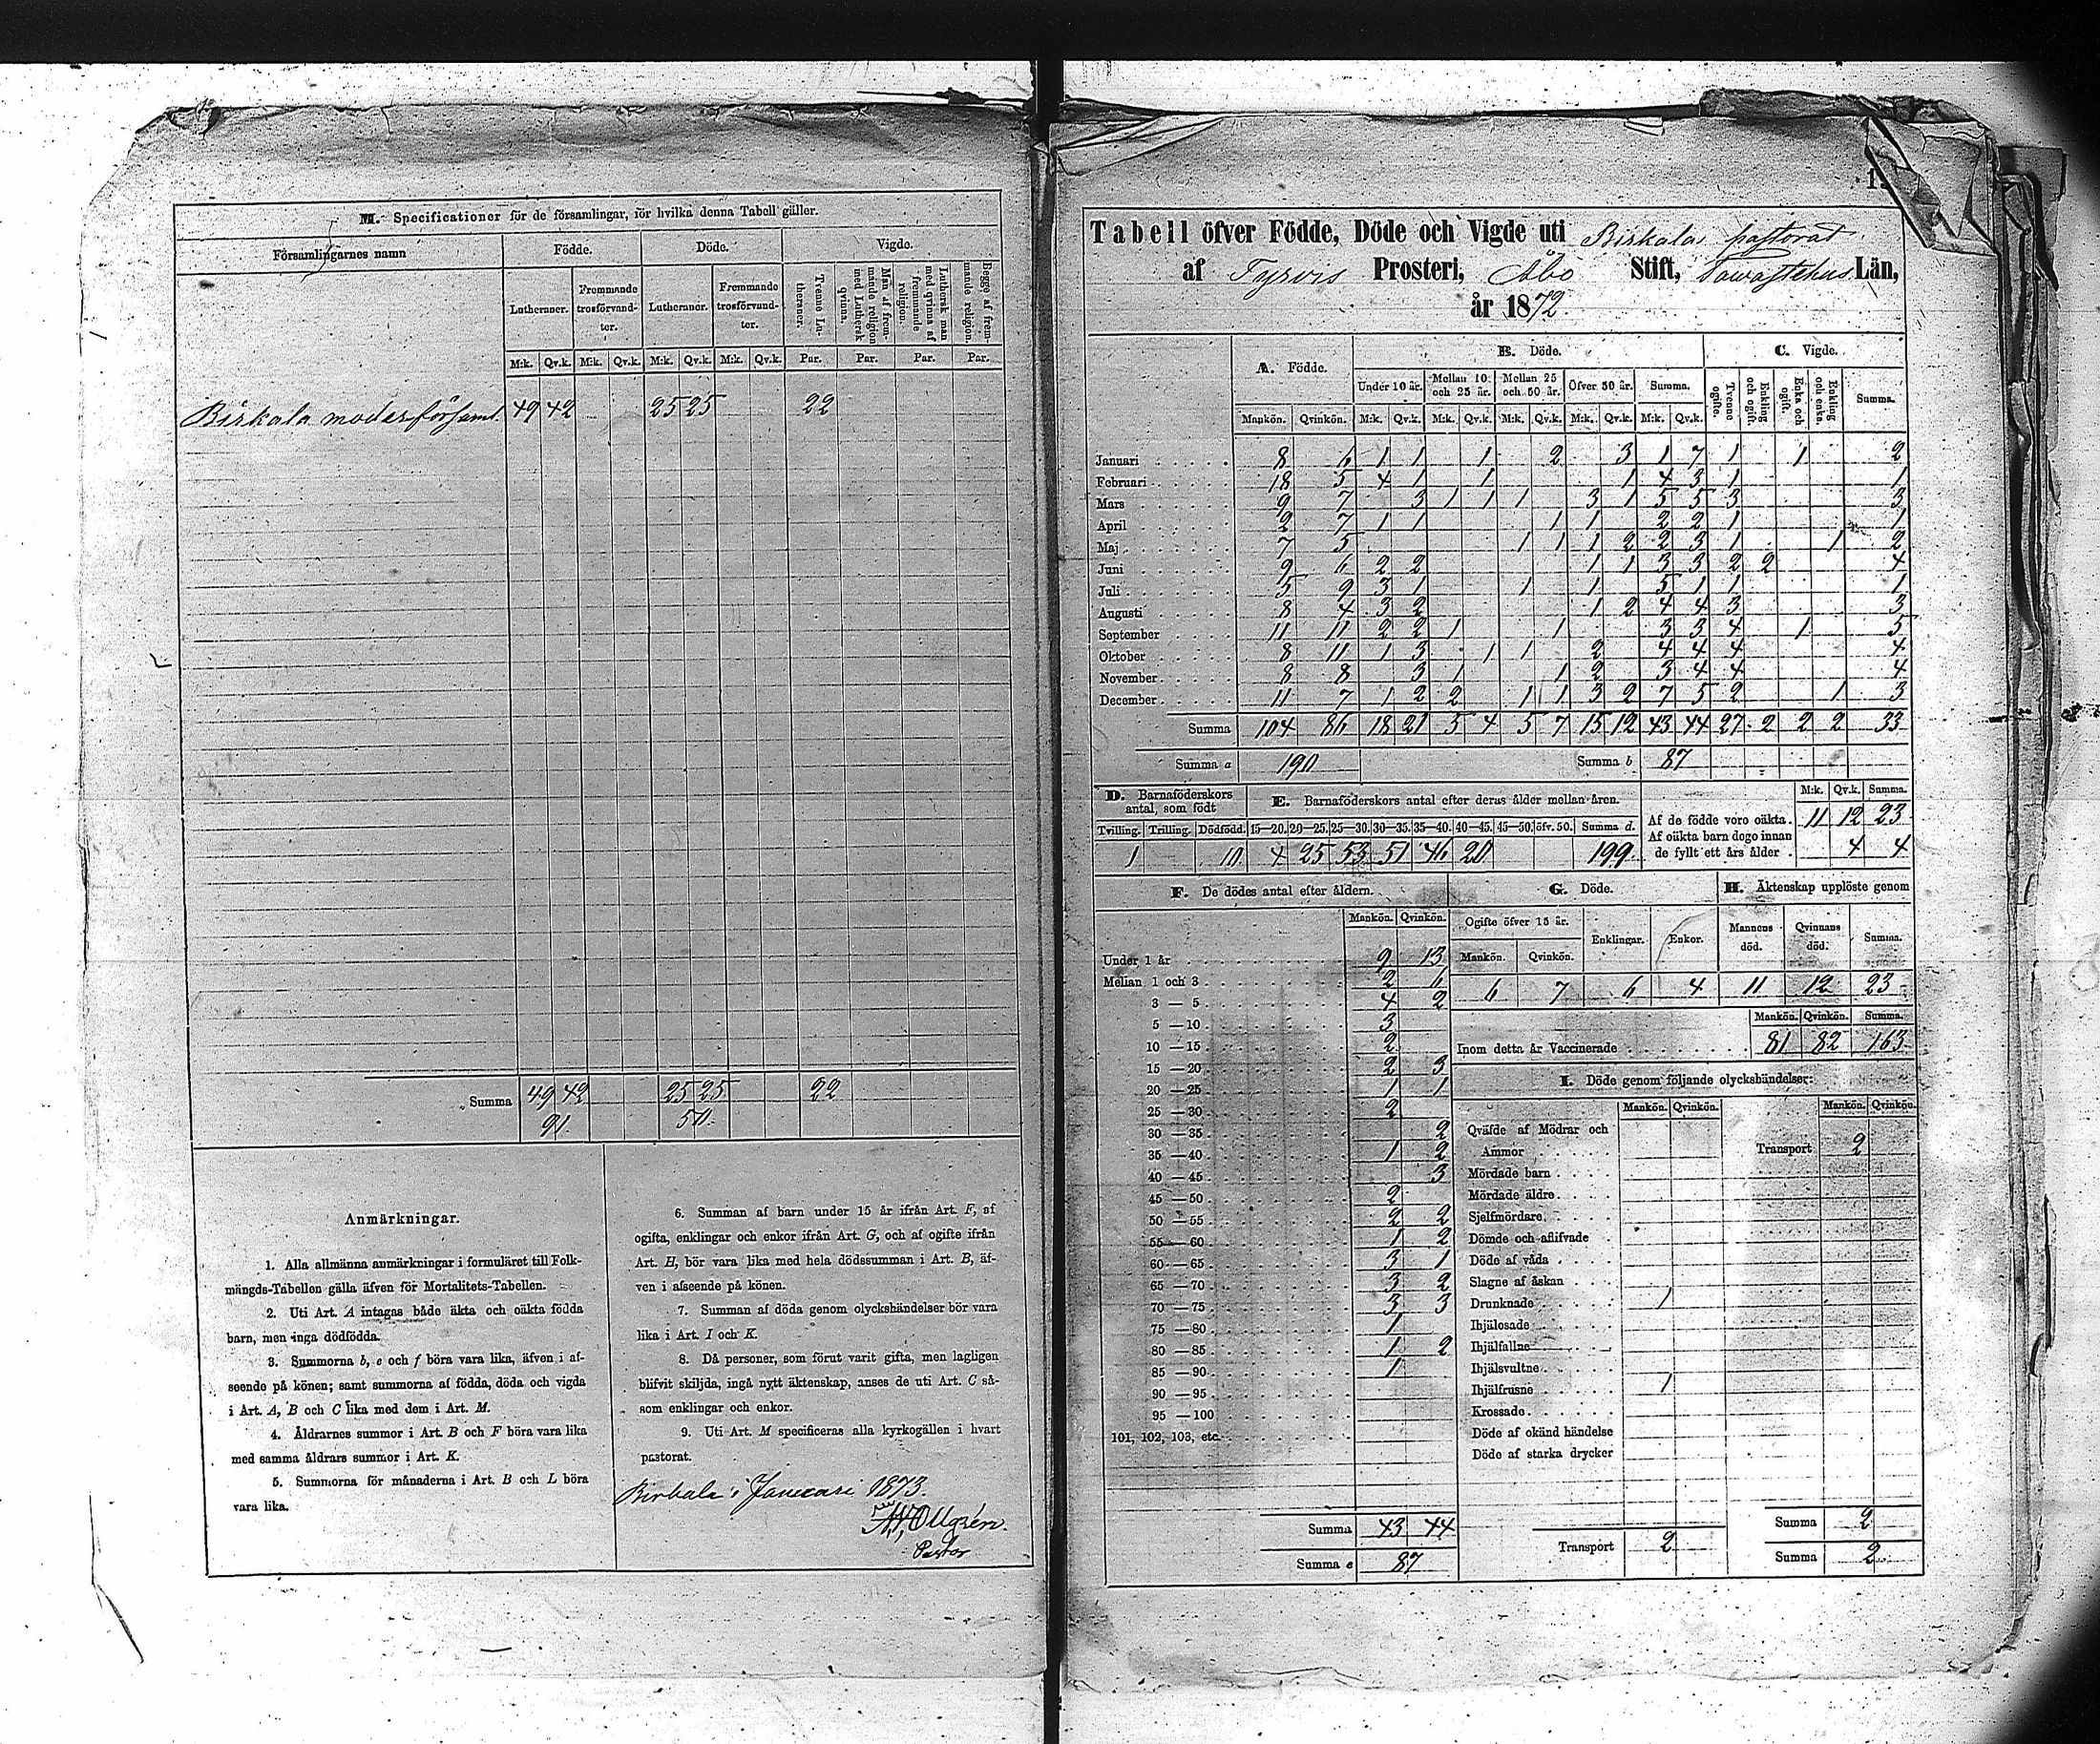 M. Specificationer för de församlingar, för hvilka denna Tabell gäller.
Församlingarnes namn Födde. Döde. Vigde.
Lutheraner. Fremmande trosförvandter. Lutheraner. Fremmande trosförvandter. Trenne Lutheraner. Man af fremmande religion med Luthersk qvinna. Luthersk man med qvinna af fremmande religion. Begge af fremmande religion.
M:k. Qv.k. M:k. Qv.k. M:k. Qv.k. M:k. Qv.k. Par. Par. Par. Par.
Birkala moderförsaml. 49 42 25 25 22
Summa 49 42 25 25 22
91 50
Anmärkningar.
1. Alla allmänna anmärkningar i formuläret till Folk-
mängds-Tabellen gälla äfven för Mortalitets-Tabellen.
2. Uti Art. A intagas både äkta och oäkta födda
barn, men inga dödfödda.
3. Summorna b, e och f böra vara lika, äfven i af-
seende på könen; samt summorna af födda, döda och vigda
i Art. A, B och C lika med dem i Art. M.
4. Åldrarnes summor i Art. B och F böra vara lika
med samma åldrars summor i Art. K.
5. Summorna för månaderna i Art. B och L böra
vara lika.
6. Summan af barn under 15 år ifrån Art. F, af
ogifta, enklingar och enkor ifrån Art. G, och af ogifte ifrån
Art. H, bör vara lika med hela dödssumman i Art. B, äf-
ven i afseende på könen.
7. Summan af döda genom olyckshändelser bör vara
lika i Art. I och K.
8. Då personer, som förut varit gifta, men lagligen
blifvit skiljda, ingå nytt äktenskap, anses de uti Art. C så-
som enklingar och enkor.
9. Uti Art. M specificeras alla kyrkogällen i hvart
pastorat.
Birkala i Januari 1873.
Pastor
Tabell öfver Födde, Döde och Vigde uti Birkala pastorat
af Tyrvis Prosteri, Åbo Stift, Tawastehus Län,
år 1872
A. Födde. B. Döde. C. Vigde.
Under 10 år. Mellan 10 och 25 år. Mellan 25 och 50 år. Öfver 50 år. Summa. Tvenne ogifte. Enkling och ogift. Enka och ogift. Enkling och enka. Summa.
Mankön. Qvinkön. M:k. Qv.k. M:k. Qv.k. M:k. Qv.k. M:k. Qv.k. M:k. Qv.k.
Januari 8 6 1 1 1 2 3 1 7 1 1 2
Februari 18 5 4 1 1 1 4 3 1 1
Mars 9 7 3 1 1 1 3 1 5 5 3 3
April 2 7 1 1 1 1 2 2 1 1
Maj 7 5 1 1 1 2 2 3 1 1 2
Juni 9 6 2 2 1 1 3 3 2 2 4
Juli 5 9 3 1 1 1 5 1 1 1
Augusti 8 4 3 2 1 2 4 4 3 3
September 11 11 2 2 1 1 3 3 4 1 5
Oktober 8 11 1 3 1 1 2 4 4 4 4
November 8 8 3 1 1 2 3 4 4 4
December 11 7 1 2 2 1 1 3 2 7 5 2 1 3
Summa 104 86 18 21 5 4 5 7 15 12 43 44 27 2 2 2 33
Summa a 190 Summa b 87
D. Barnaföderskors antal, som födt E. Barnaföderskors antal efter deras ålder mellan åren. M:k. Qv.k. Summa.
Tvilling. Trilling. Dödfödd. 15—20. 20—25. 25—30. 30—35. 35—40. 40—45. 45—50. öfv. 50. Summa d.
1 10 4 25 53 51 46 20 199
Af de födde voro oäkta. 11 12 23
Af oäkta barn dogo innan
de fyllt ett års ålder 4 4
F. De dödes antal efter åldern. G. Döde. H. Äktenskap upplöste genom
Mankön. Qvinkön.
Under 1 år 9 13
Mellan 1 och 3 2 6
3 — 5 4 2
5 — 10 3
10 — 15 2
15 — 20 2 3
20 — 25 1 1
25 — 30 2
30 — 35 2
35 — 40 1 2
40 — 45 3
45 — 50 2
50 — 55 2 2
55 — 60 1 2
60 — 65 3 1
65 — 70 3 2
70 — 75 3 3
75 — 80 1
80 — 85 1 2
85 — 90 1
90 — 95
95 — 100
101, 102, 103, etc.
Summa 43 44
Summa e 87
Ogifte öfver 15 år. Enklingar. Enkor. Mannens död. Qvinnans död. Summa.
Mankön. Qvinkön.
6 7 6 4 11 12 23
Mankön. Qvinkön. Summa.
Inom detta år Vaccinerade 81 82 163
I. Döde genom följande olyckshändelser:
Mankön. Qvinkön. Mankön. Qvinkön.
Qväfde af Mödrar och
Ammor
Mördade barn
Mördade äldre
Sjelfmördare
Dömde och aflifvade
Döde af våda
Slagne af åskan
Drunknade 1
Ihjälosade
Ihjälfallne
Ihjälsvultne
Ihjälfrusne 1
Krossade
Döde af okänd händelse
Döde af starka drycker
Transport 2
Transport 2
Summa 2
Summa 2